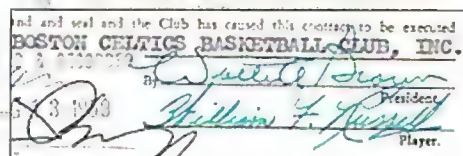 and and seal and the Club has caused this contract to be executed
BOSTON CELTICS BASKETBALL CLUB, INC.
By Walter A Brown
President
3 1963
William F. Russell
Player.